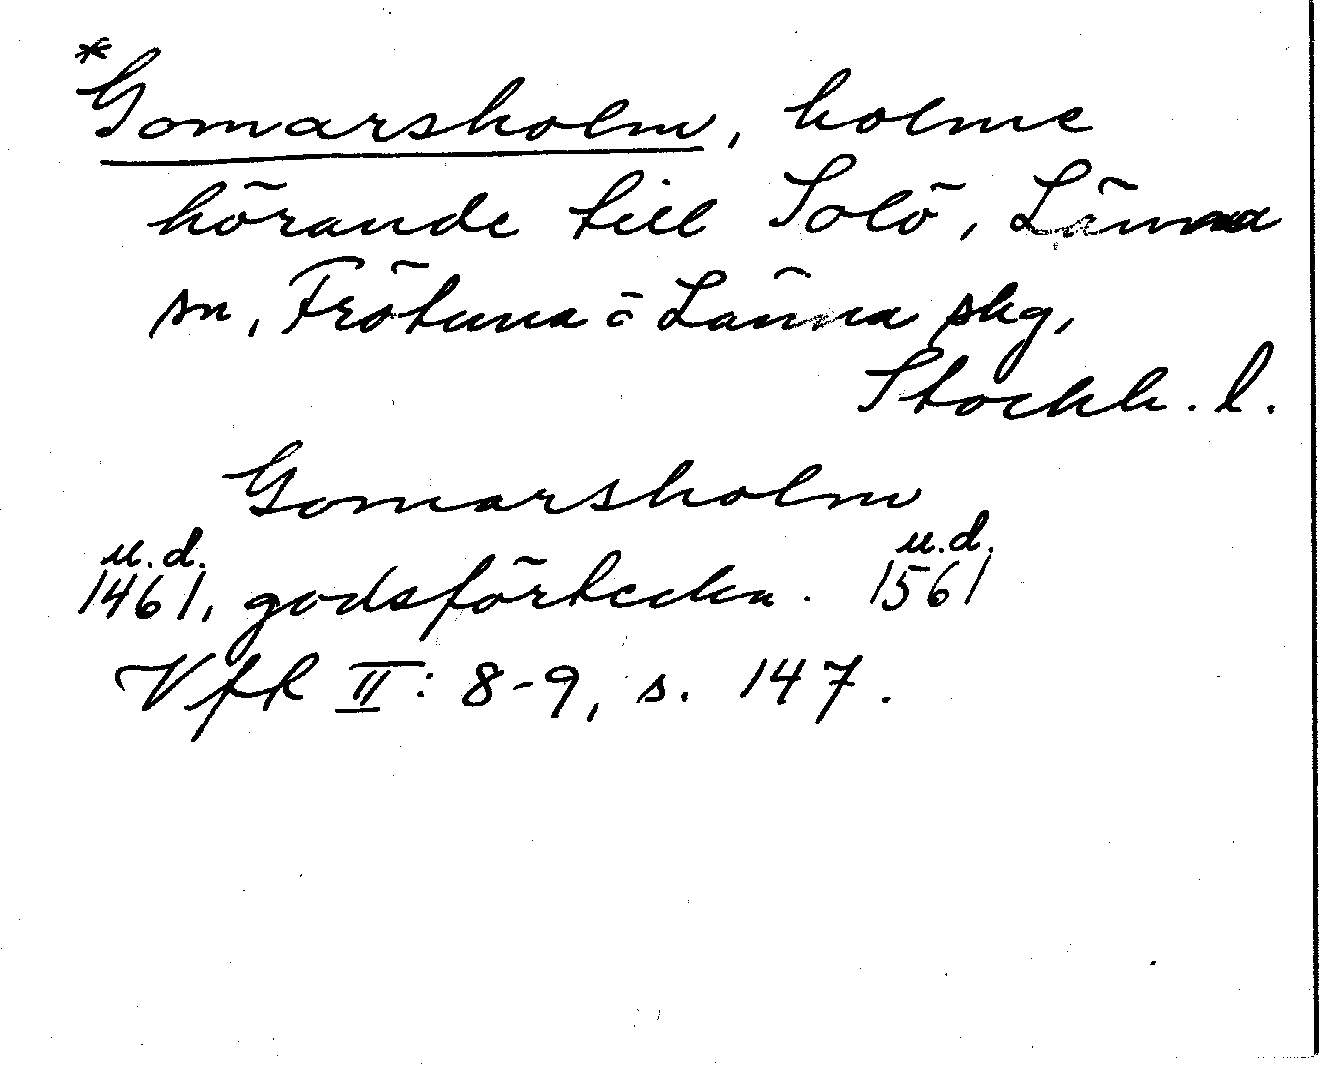 *Gomarsholm, holme
hörande till Solö, Länna
sn, Frötuna o Länna skg,
Stockh. l.
Gomarsholm
u.d. u.d.
1461, godsförteckn. 1561
VFR II: 8-9, s. 147.